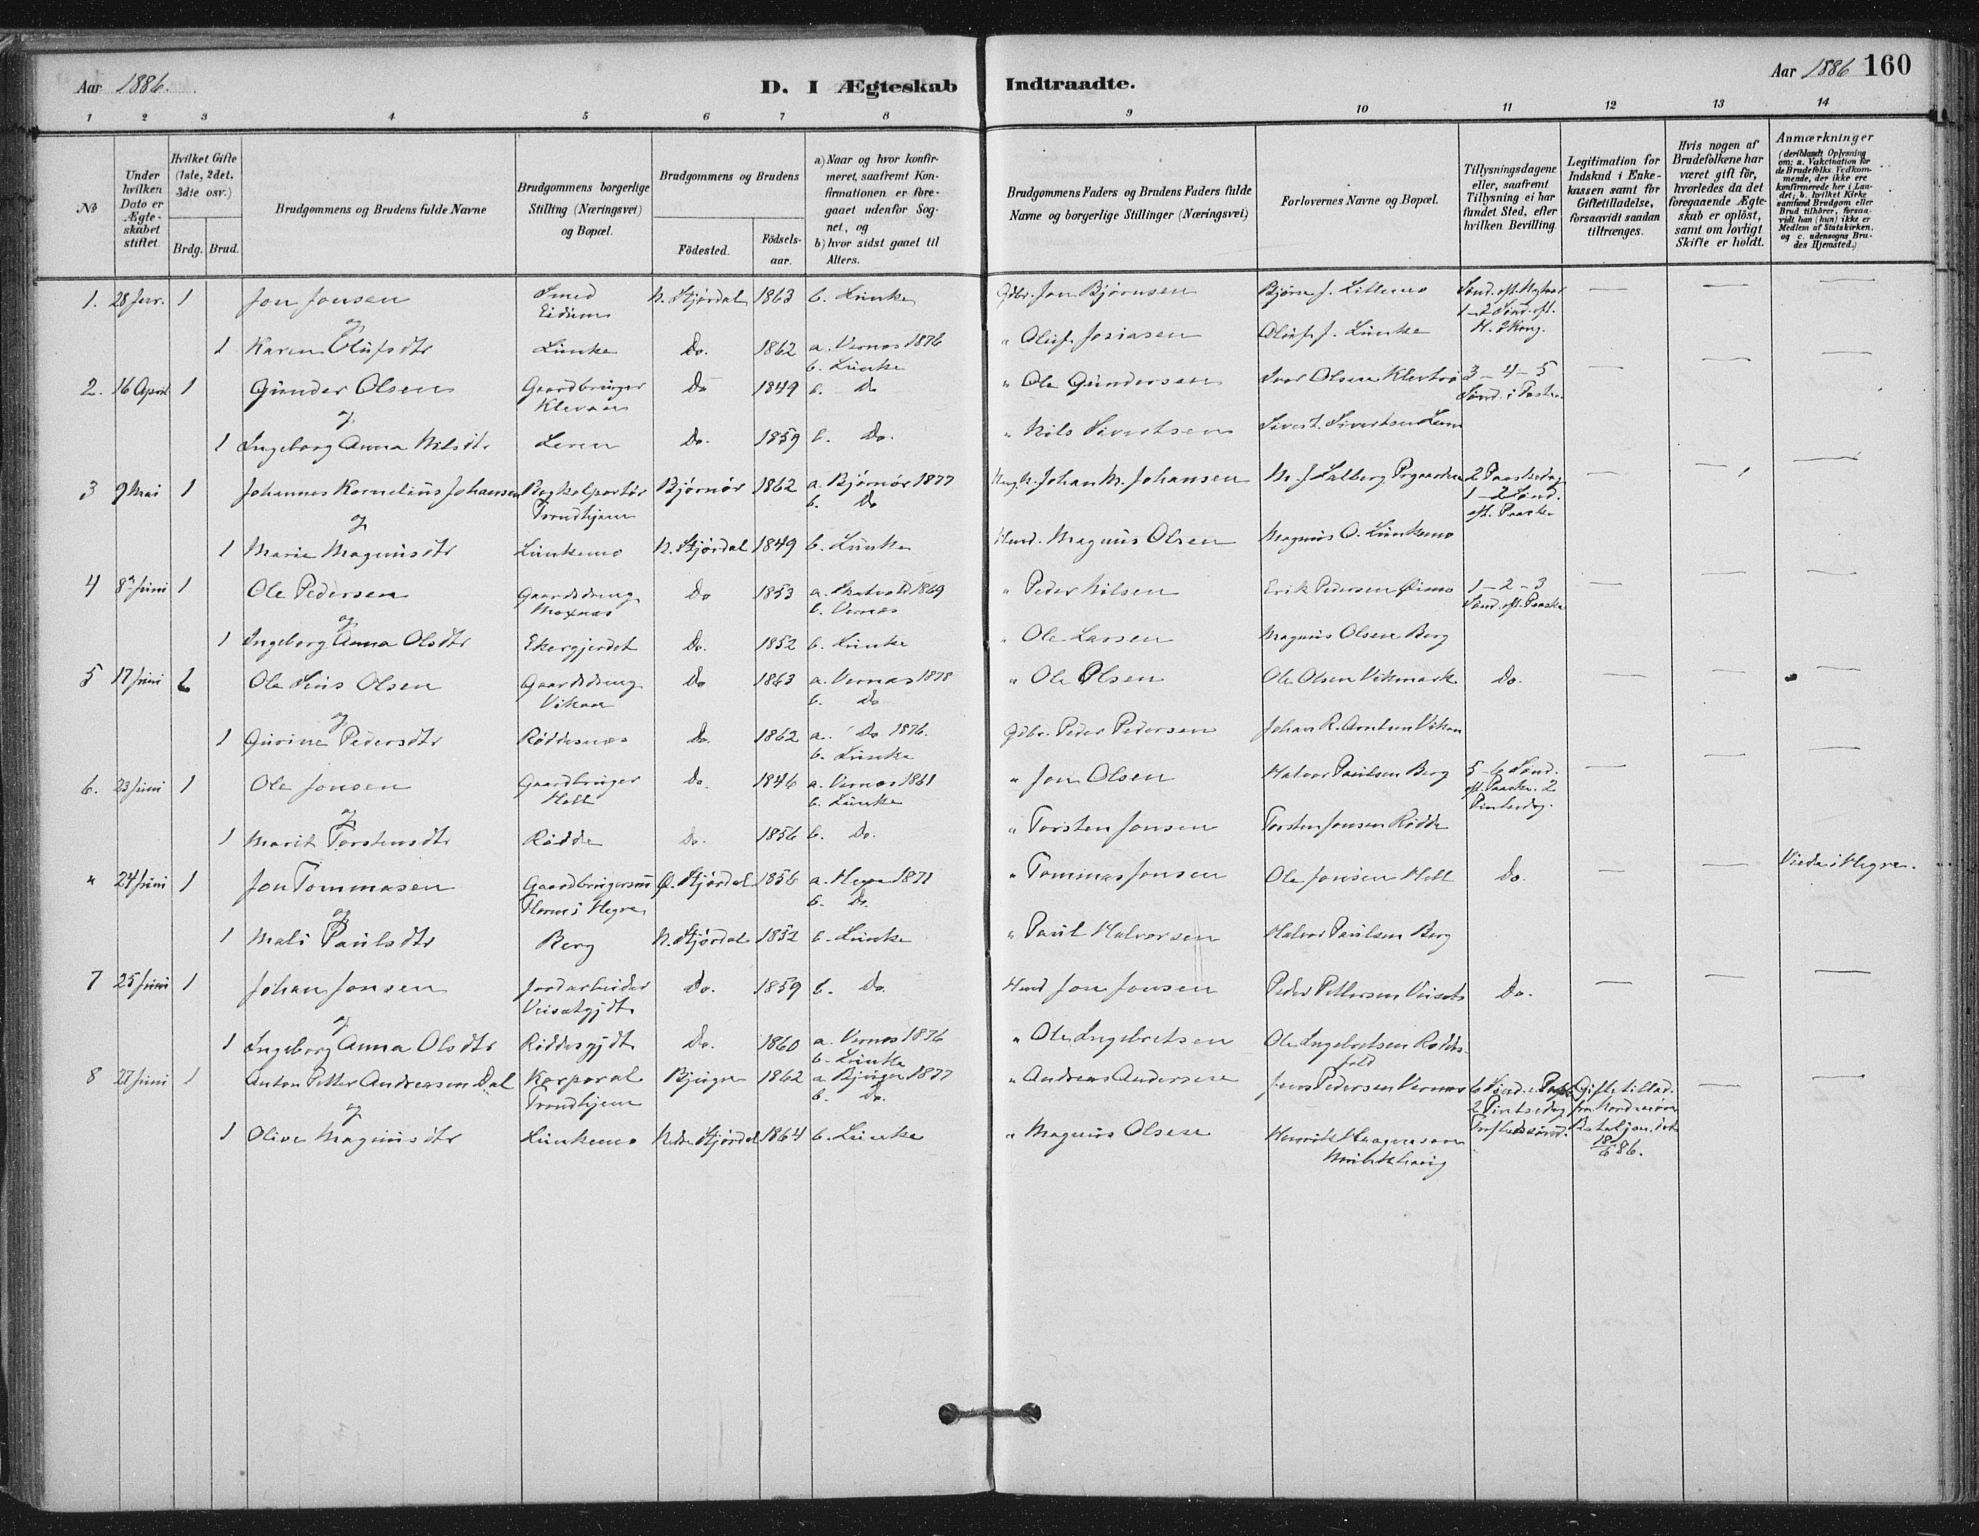 Aar 1886.
D. I Ægteskab Indtraadte.
Aar 1886 160
1 2 3 4 5 6 7 8 9 10 11 12 13 14
No
Under hvilken Dato er Ægteskabet stiftet.
Hvilket Gifte (1ste, 2det. 3die osv.)
Brdg. Brud.
Brudgommens og Brudens fulde Navne
Brudgommens borgerlige Stilling (Næringsvei) og Bopæl.
Brudgommens og Brudens
Fødested. Fødselsaar.
a) Naar og hvor konfirmeret, saafremt Konfirmationen er foregaaet udenfor Sognet, og
b) hvor sidst gaaet til Alters.
Brudgommens Faders og Brudens Faders fulde Navne og borgerlige Stillinger (Næringsvei)
Forlovernes Navne og Bopæl.
Tillysningsdagene eller, saafremt Tillysning ei har fundet Sted, efter hvilken Bevilling.
Legitimation for Indskud i Enkekassen samt for Giftetilladelse, forsaavidt saadan tiltrænges.
Hvis nogen af Brudefolkene har været gift før, hvorledes da det foregaaende Ægteskab er opløst, samt om lovligt Skifte er holdt.
Anmærkninger
(deriblandt Oplysning om: a. Vakcination for de Brudefolks. Vedkommende, der ikke ere konfirmerede her i Landet; b. hvilket Kirkesamfund Brudgom eller Brud tilhører, forsaavidt han (hun) ikke er Medlem af Statskirken, og c. udensogns Brudes Hjemsted.)
1. 28 Jnr. 1 Jon Jonsen Smed N. Stjørdal 1863 b. Lunke Gdbr. Jon Bjørnsen Bjørn J. Lillemo
Eidum
og
1 Karen Olufsdtr Lunke Do. 1862 a. Vernes 1876 " Oluf Josiasen Oluf J. Lunke
b. Lunke
2. 16 April 1 Gunder Olsen Gaardbruger Do 1849 b. Do " Ole Gundersen Ivar Olsen 3-4-5
Klevaan Sønd. i Faste
og
1 Ingeborg Anna Nilsdtr Leren Do. 1859 b. Do. " Nils Sivertsen Sivert Sivertsen
3 9 Mai 1 Johannes Kornelius Johansen Bogkolportør Bjørnør 1862 a. Bjørnør 1877 Johan M. Johansen 2 Paaskedag
Trondhjem b. Do 1-2 Sønd.
og eft. Paaske
1 Marie Magnusdtr Lunkemo N. Stjørdal 1849 b. Lunke Husmd. Magnus Olsen Magnus O. Lunkemo
4 8 Juni 1 Ole Pedersen Gaardsdreng Do 1853 a. Skatval 1869 " Peder Nilsen Erik Pedersen 1-2-3
Moxnes b. Vernes Sønd. eft. Paaske
og
1 Ingeborg Anna Olsdtr Ekergjerdet Do. 1852 b. Lunke " Ole Larsen Magnus Olsen Berg
5 17 Juni Ole Olsen Gaardsdreng Do 1863 a. Vernes 1878 " Ole Olsen Ole Olsen Vikmark Do.
Vikan b. Do
og
1 Gurine Pedersdtr Røddesnes Do. 1862 a. Do 1876. Gdbr. Peder Pedersen Johan R. Arntsen Vikan
b. Lunke
6. 23 Juni 1 Ole Jonsen Gaardbruger Do. 1846 a. Vernes 1861 " Jon Olsen Halvor Paulsen Berg 5-6 Sønd.
b. Lunke eft. Paaske. 2
og Pintsedag.
1 Marit Torstensdtr Rødde Do. 1856 b. Do. " Torsten Jonsen Torsten Jonsen Rødde
" 24 Juni 1 Jon Tommasen Gaardbrugersøn Ø. Stjørdal 1856 a. Hegre 1871 " Tommas Jonsen Ole Jonsen Do. Viede i Hegre.
i Hegre b. Do.
og
1 Mali Paulsdtr Berg N. Stjørdal 1852 b. Lunke " Paul Halvorsen Halvor Paulsen Berg
7 25 Juni 1 Johan Jonsen Jordarbeider Do. 1859 b. Do. Husmd Jon Jonsen Peder Do.
og
1 Ingeborg Anna Olsdtr Røddesgjdt Do. 1860 a. Vernes 1876 " Ole Ingebretsen Ole Ingebretsen
b. Lunke
8 27 Juni 1 Anton Petter Andreasen Dal Korporal Bjugn 1862 a. Bjugn 1877 " Andreas Andersen Jens Pedersen Vernes 6 Sønd. e. Paaske Giftetillad.
Trondhjem b. Do. 2 Pintsedag
og
1 Olive Magnusdtr Lunkemo Nedre Stjørdal 1864 b. Lunke " Magnus Olsen Henrik 18/6 86.